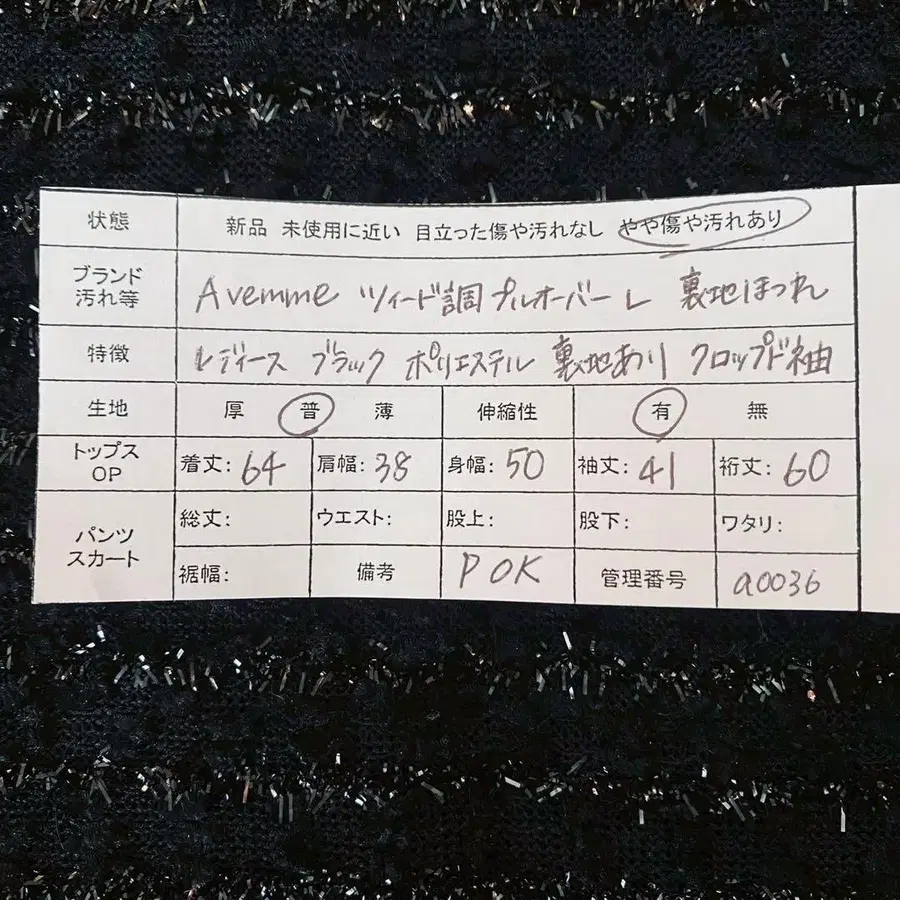 状態 新品 未使用に近い 目立った傷や汚れなし やや傷や汚れあり
ブランド
汚れ等 Avemme ツィード調 プルオーバー L 裏地ほつれ
特徴 レディース ブラック ポリエステル 裏地あり クロップド袖
生地 厚 普 薄 伸縮性 有 無
トップス
OP 着丈: 64 肩幅: 38 身幅: 50 袖丈: 41 裄丈: 60
パンツ
スカート 総丈: ウエスト: 股上: 股下: ワタリ:
裾幅: 備考 P OK 管理番号 a0036